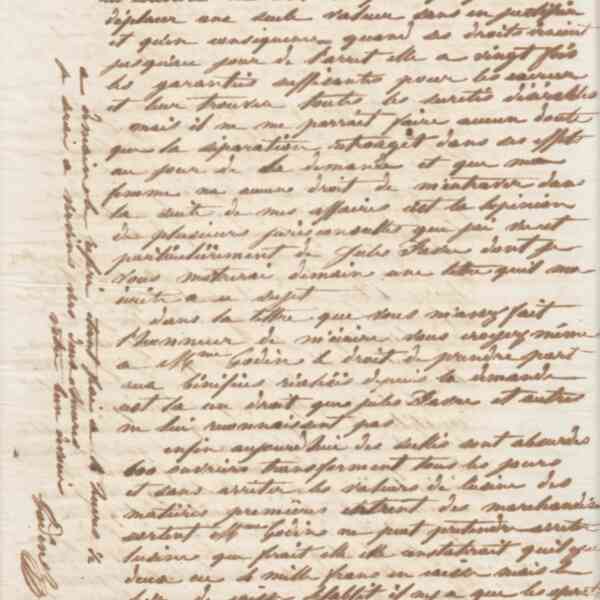 déplacer une seule valeur sans en justifier
et qu'en conséquence quand ses droits iraient
jusqu'au jour de l'arret elle a vingt fois
les garanties suffisantes pour les assurer
et leur trouver toutes les suretés désirables
mais il ne me parrait faire aucun doute
que la separation retroagit dans ses effets
au jour de la demande et que ma
femme na aucun droit de m'entraver dans
la suite de mes affaires cest la lopinion
de plusieurs jurisconsultes que jai vu et
particulièrement de Jules Favre dont je
vous montrerai demain une lettre quil ma
écrite a ce sujet
dans la lettre que vous m'avez fait
l'honneur de m'écrire vous croyez même
a Mme Godin le droit de prendre part
aux bénéfices réalisés depuis la demande
est la un droit que jules Favre et autres
ne lui reconnaissent pas
enfin aujourd'hui des scellés sont absurdes
les ouvriers transforment tous les jours
et sans arreter les valeurs de lusine des
matières premières entrent des marchandises
sortent Mme Godin ne peut pretendre arreter
lusine que ferait elle elle constaterait quil y a
deux ou 4 mille francs en caisse mais le
livre de caisse établit il ny a que les
a demain
votre bien dévoué
Godin